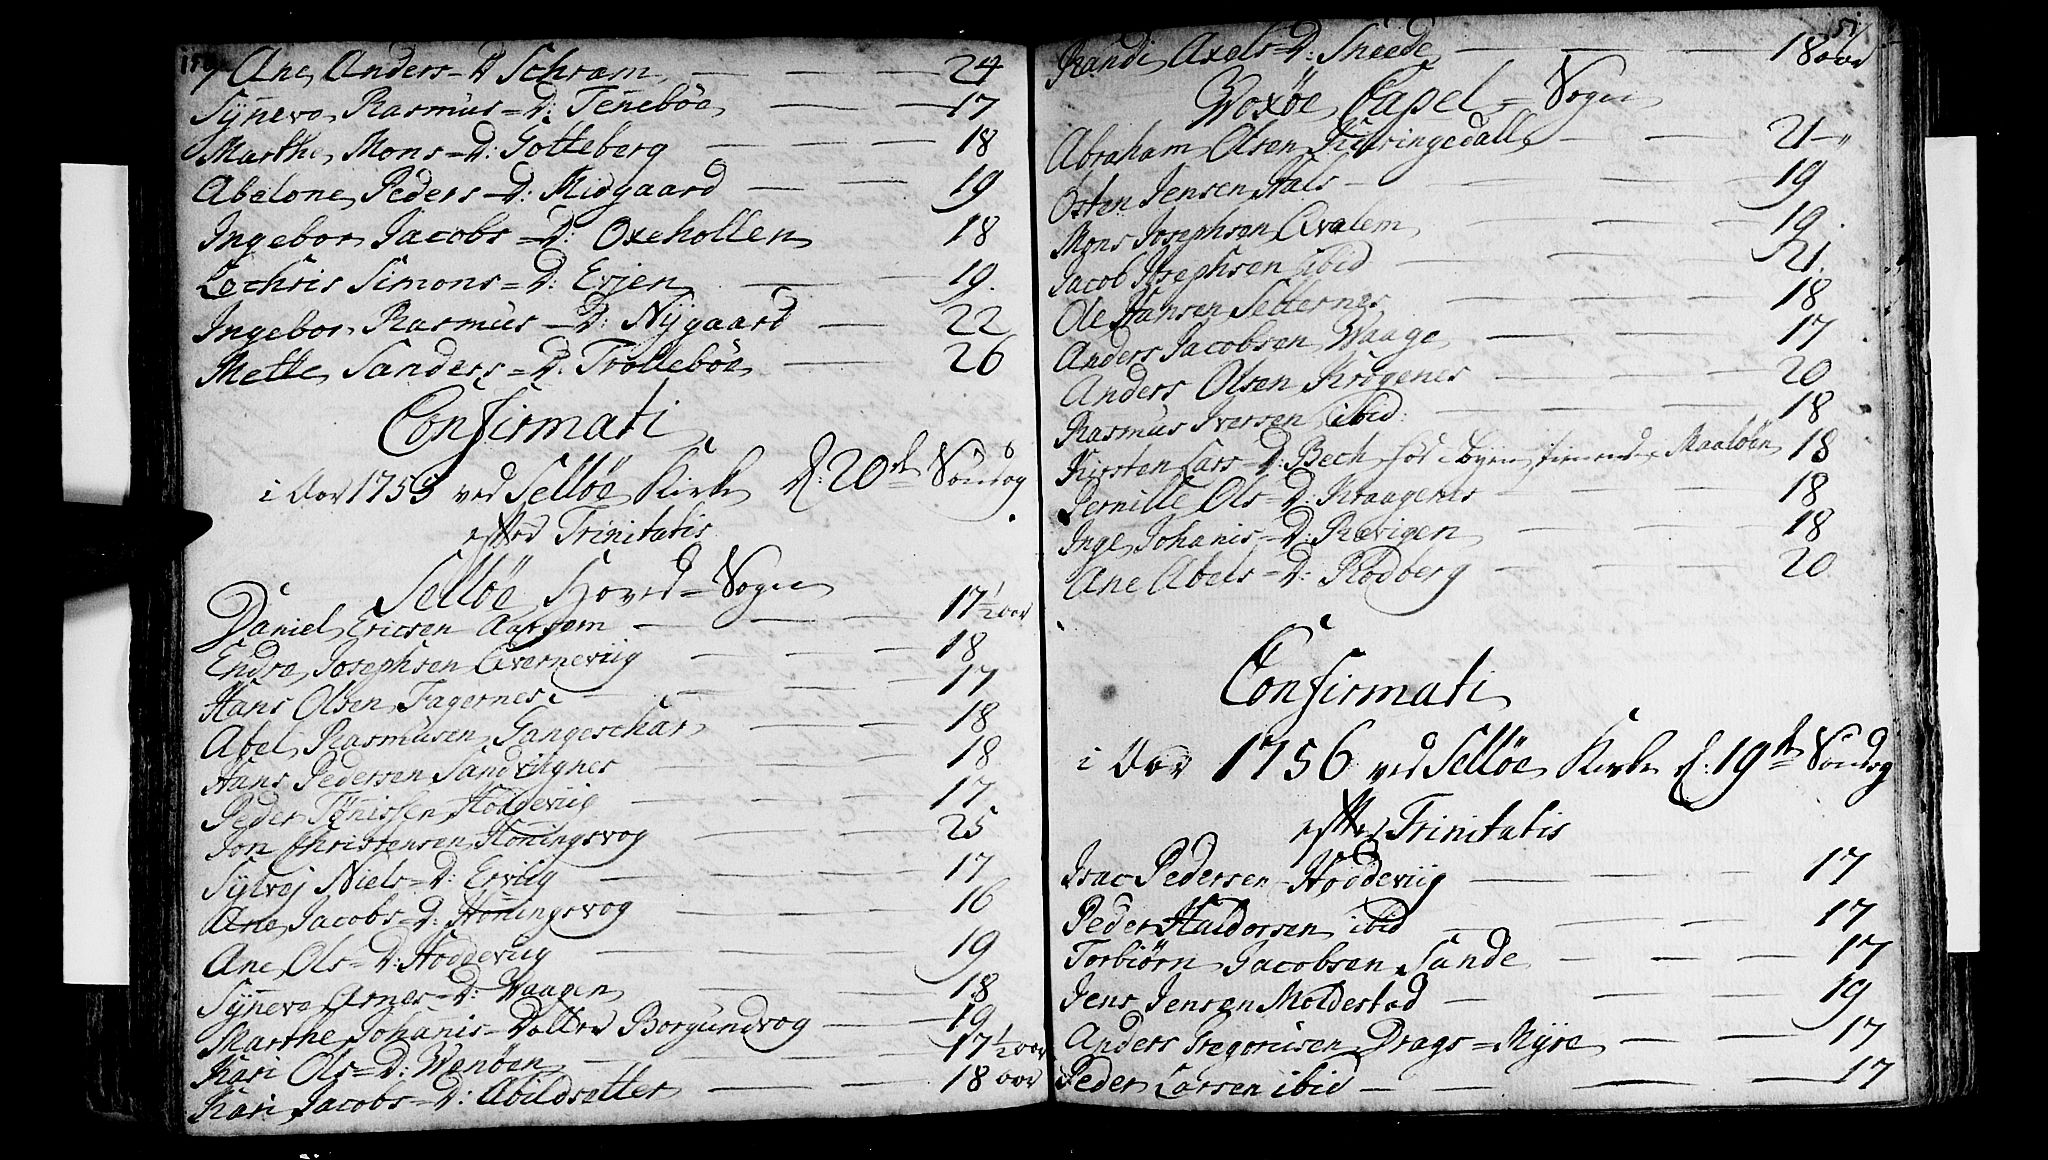 Ane Anders-D Schram 24
Synevo Rasmus-D: Tenebøe 17
Marthe Mons-D: Gotteberg 18
Abelone Peders-D: Midgaard 19
Ingebor Jacobs-D: Oxehollen 18
Lechris Simons-D: Erjen 19.
Ingebor Rasmus-D: Nÿgaard 22
Mette Sanders-D: Trollebøe 26
Confirmati
i Aar 1755 ved Selløe Kirke d: 20de Søndag
efter Trinitatis
Selløe Hoved-Sogn
Daniel Ericsen Aarsem 17 1/2 aar
Endre Josephsen Qvernevüg 18
Hans Olsen Fagernes 17
Abel Rasmusen Gangeschar 18
Hans Pedersen Sandvihgnes 18
Peder Tønissen Hoddevüg 17
Jon Christensen Honingsvog 25
Sylvej Niels-D: Ervüg 17
Ane Jacobs-D: Honingsvog 16
Ane Ols-D: Hoddevüg 19
Synevo Arnes-D: Waagen 18
Marthe Johanis-Datter Borgundvog 19
Kari Ols-D: Wenøen 17 1/2 aar
Kari Jacobs-D: Abildsetter 18 aar
151
Randi Axels-D: Sneede 18 aar
Woxøe Capel-Sogn
Abraham Olsen Kierringedall 21
Osten Jensen Hals 19
Mons Josephsen Qvalem 19.
Jacob Josephsen ibid 21.
Ole Hansen Setternes 18
Anders Jacobsen Waage 17
Anders Olsen Krogenes 20
Rasmus Iversen ibid: 18
Kirsten Lars-D: Bech fød i Byen tienende Maaløen 18
Pernille Ols-D: Kraagenes 18
Inge Johanis-D: Revigen 18
Ane Abels-D: Rødberg 20
Confirmati
i Aar 1756 ved Selløe Kirke d: 19de Søndag
efter Trinitatis
Isac Pedersen Hoddevüg 17
Peder Haldorsen ibid 17
Torbiørn Jacobsen Sande 17
Jens Jensen Moldestad 19
Anders Gregoriisen Drags-Mÿre 17
Peder Larsen ibid 17